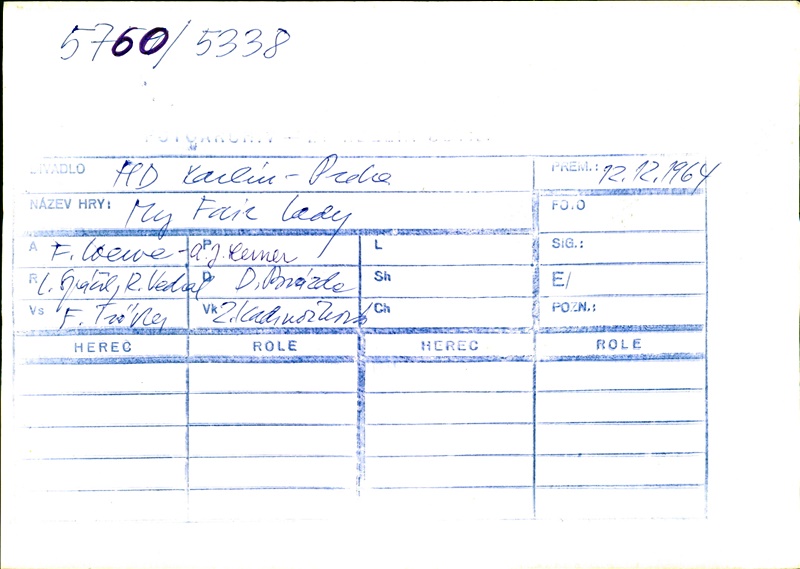 5760/5338
DIVADLO HD Karlín - Praha PREM.: 12.12.1964
NÁZEV HRY: My Fair Lady FOTO
A F. Loewe - P A. J. Lerner L SIG.:
R L. Spáčil, R. Vedral D D. Brázda Sh E/
Vs F. Tröster Vk Ch POZN.:
HEREC ROLE HEREC ROLE